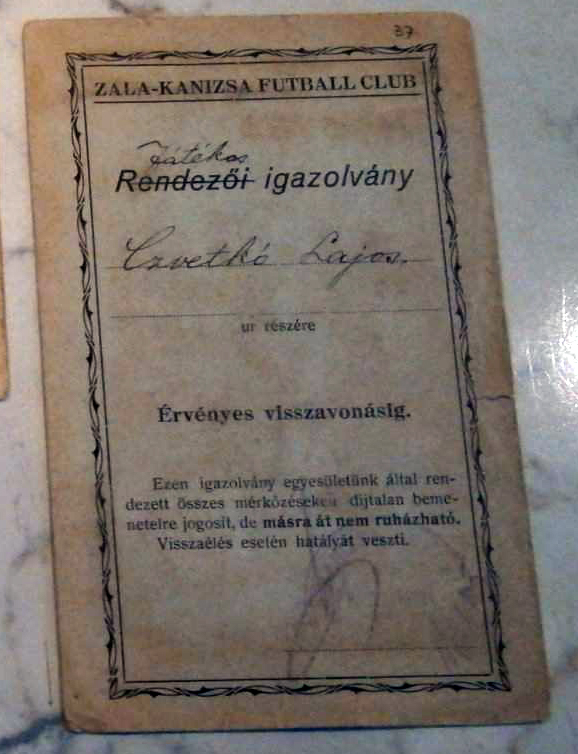 37
ZALA-KANIZSA FUTBALL CLUB
Játékos
Rendezői igazolvány
Czvetkó Lajos.
ur részére
Érvényes visszavonásig.
Ezen igazolvány egyesületünk által ren-
dezett összes mérkőzéseken díjtalan beme-
netelre jogosit, de másra át nem ruházható.
Visszaélés esetén hatályát veszti.